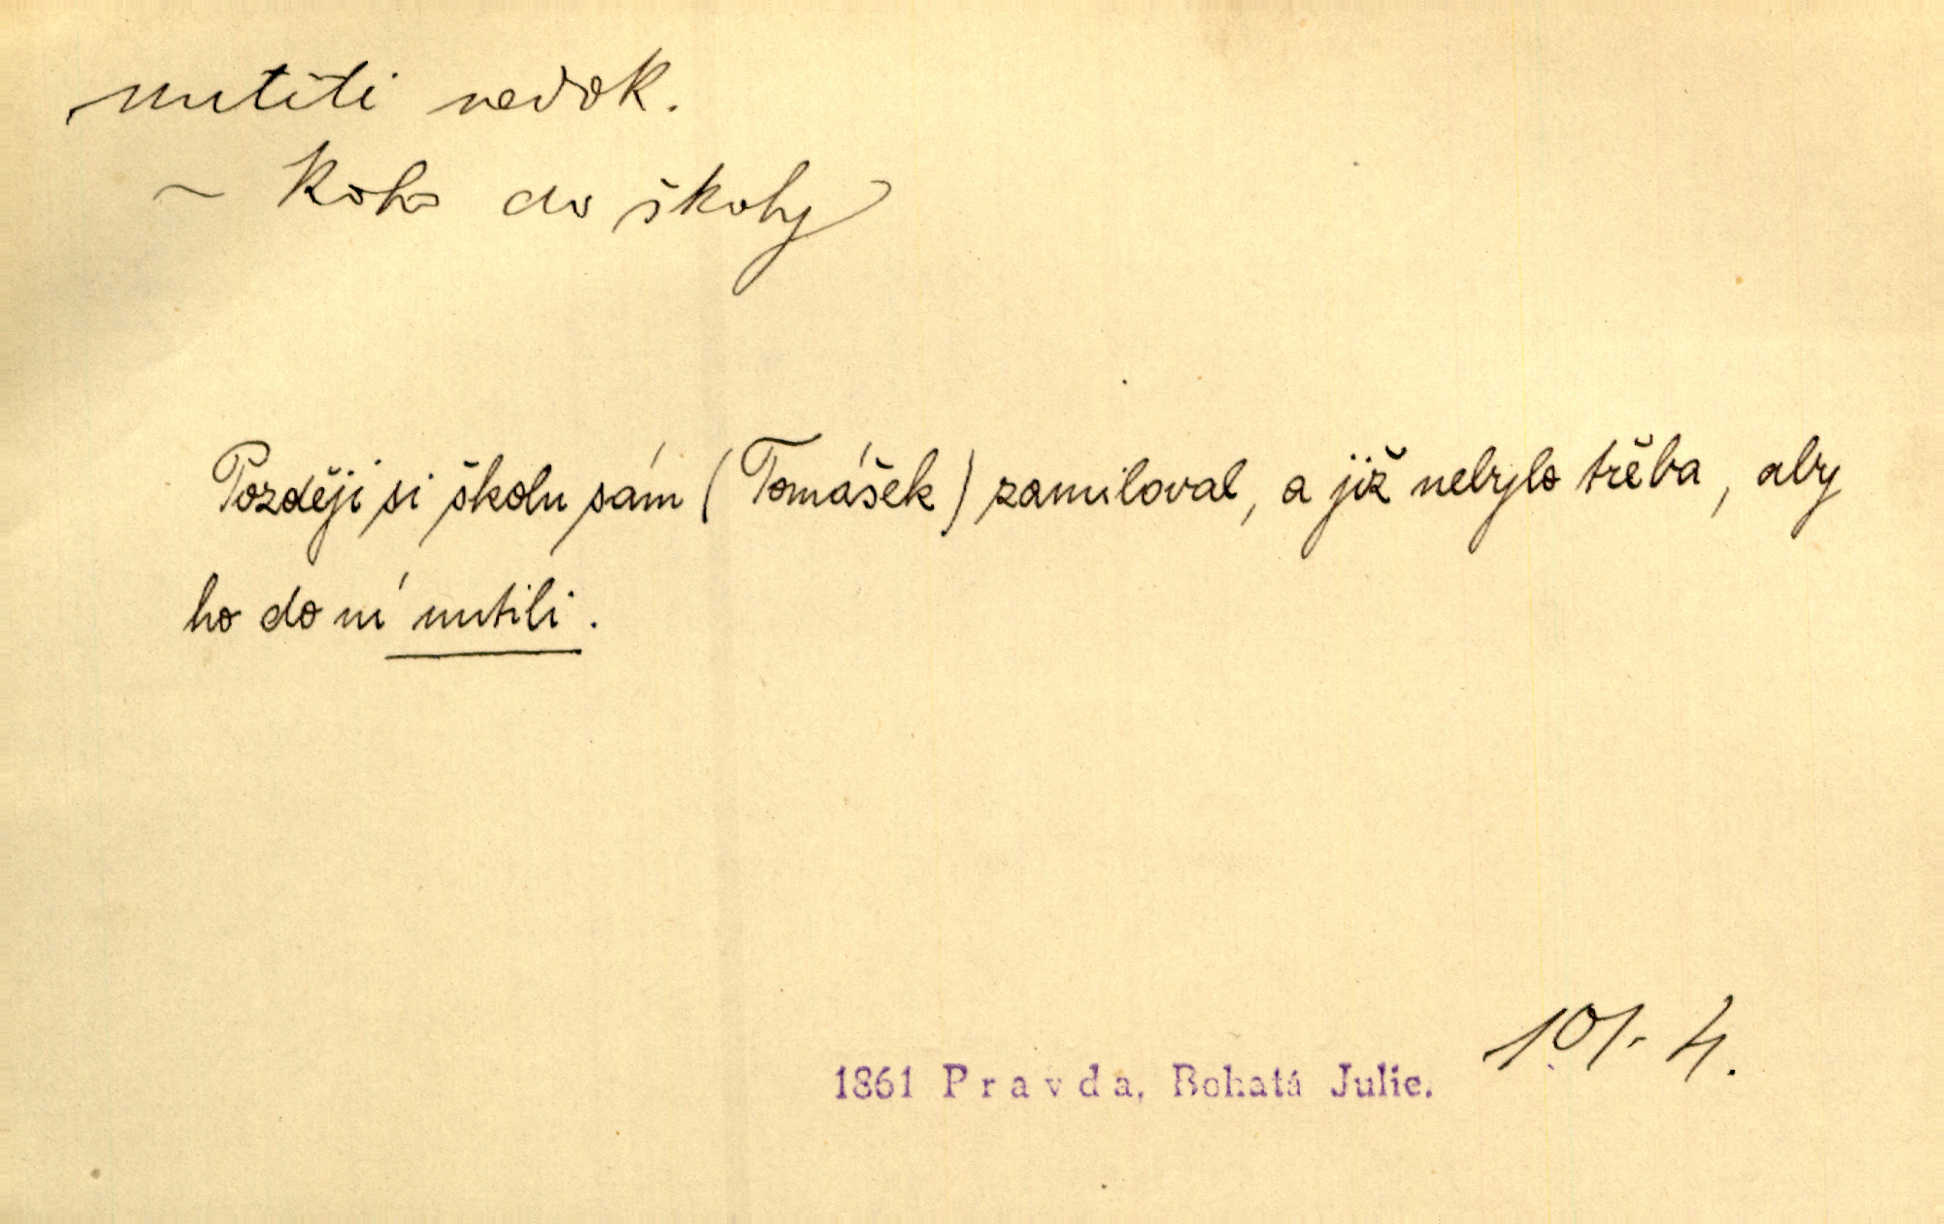 nutiti nedok.
~ Koho do školy
Později si školu sám (Tomášek) zamiloval, a již nebylo třeba, aby
ho do ní nutili.
101. 4.
1861 Pravda, Bohatá Julie.